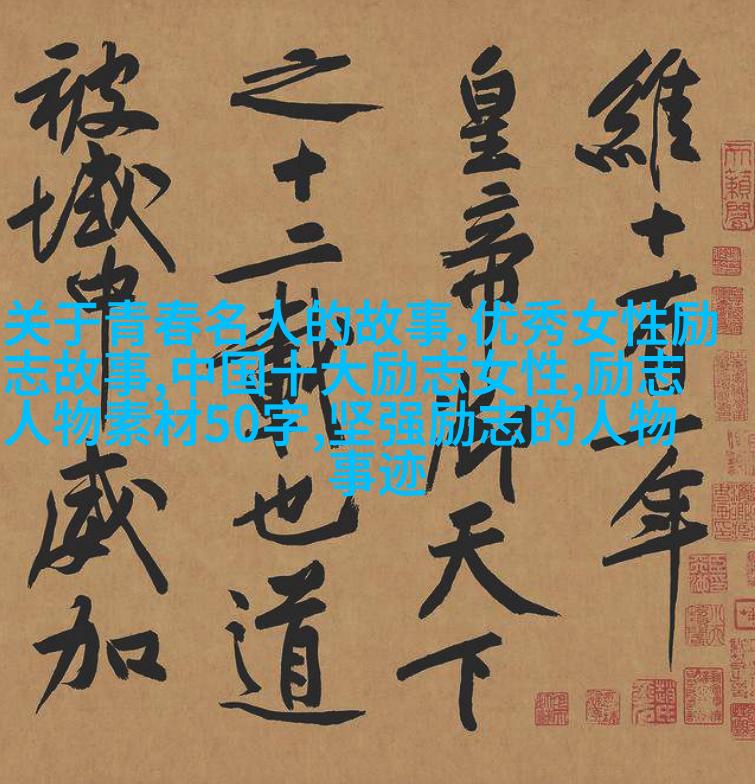 維十有一年
皇帝御天下
之十二載也道
被域中威加
关于青春名人的故事,优秀女性励
志故事,中国十大励志女性,励志
人物素材50字,坚强励志的人物
事迹